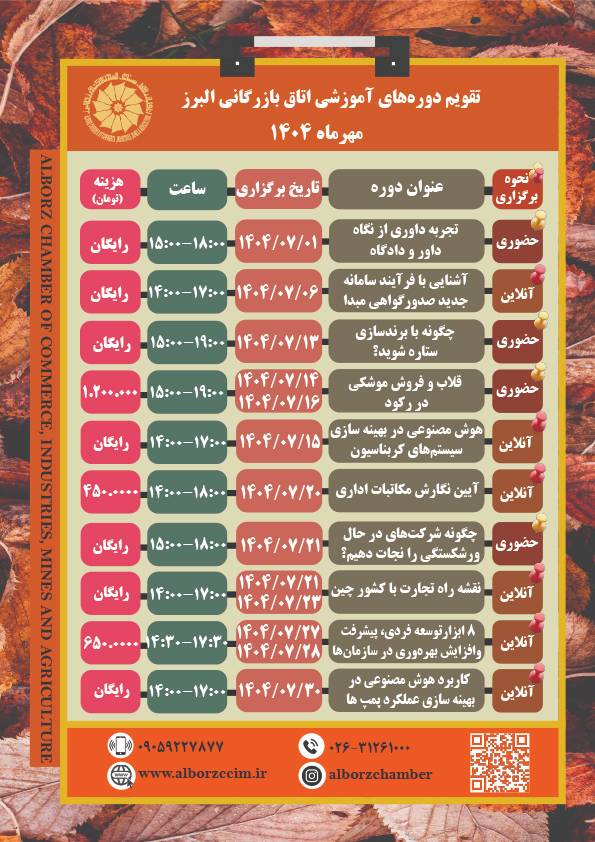 تقویم دوره‌های آموزشی اتاق بازرگانی البرز
مهرماه ۱۴۰۴
نحوه برگزاری عنوان دوره تاریخ برگزاری ساعت هزینه (تومان)
حضوری تجربه داوری از نگاه داور و دادگاه ۱۴۰۴/۰۷/۰۱ ۱۵:۰۰-۱۸:۰۰ رایگان
آنلاین آشنایی با فرآیند سامانه جدید صدورگواهی مبدا ۱۴۰۴/۰۷/۰۶ ۱۴:۰۰-۱۷:۰۰ رایگان
حضوری چگونه با برندسازی ستاره شوید؟ ۱۴۰۴/۰۷/۱۳ ۱۵:۰۰-۱۹:۰۰ رایگان
حضوری قلاب و فروش موشکی در رکود ۱۴۰۴/۰۷/۱۴ ۱۴۰۴/۰۷/۱۶ ۱۵:۰۰-۱۹:۰۰ ۱.۲۰۰.۰۰۰
آنلاین هوش مصنوعی در بهینه سازی سیستم‌های کربناسیون ۱۴۰۴/۰۷/۱۵ ۱۴:۰۰-۱۷:۰۰ رایگان
آنلاین آیین نگارش مکاتبات اداری ۱۴۰۴/۰۷/۲۰ ۱۴:۰۰-۱۸:۰۰ ۴۵۰.۰۰۰۰
حضوری چگونه شرکت‌های در حال ورشکستگی را نجات دهیم؟ ۱۴۰۴/۰۷/۲۱ ۱۵:۰۰-۱۸:۰۰ رایگان
آنلاین نقشه راه تجارت با کشور چین ۱۴۰۴/۰۷/۲۱ ۱۴۰۴/۰۷/۲۳ ۱۴:۰۰-۱۷:۰۰ رایگان
آنلاین ۸ ابزارتوسعه فردی، پیشرفت وافزایش بهره‌وری در سازمان‌ها ۱۴۰۴/۰۷/۲۷ ۱۴۰۴/۰۷/۲۸ ۱۴:۳۰-۱۷:۳۰ ۶۵۰.۰۰۰۰
آنلاین کاربرد هوش مصنوعی در بهینه سازی عملکرد پمپ ها ۱۴۰۴/۰۷/۳۰ ۱۴:۰۰-۱۷:۰۰ رایگان
ALBORZ CHAMBER OF COMMERCE, INDUSTRIES, MINES AND AGRICULTURE
۰۲۶-۳۱۲۶۱۰۰۰ ۰۹۰۵۹۲۲۷۸۷۷
alborzchamber www.alborzccim.ir